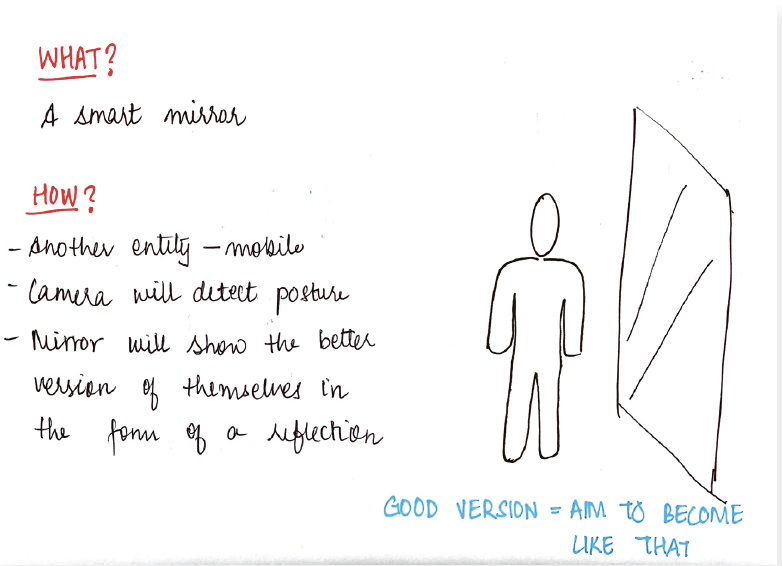 WHAT?
A smart mirror
HOW?
- Another entity - mobile
- Camera will detect posture
- Mirror will show the better
version of themselves in
the form of a reflection
GOOD VERSION = AIM TO BECOME
LIKE THAT